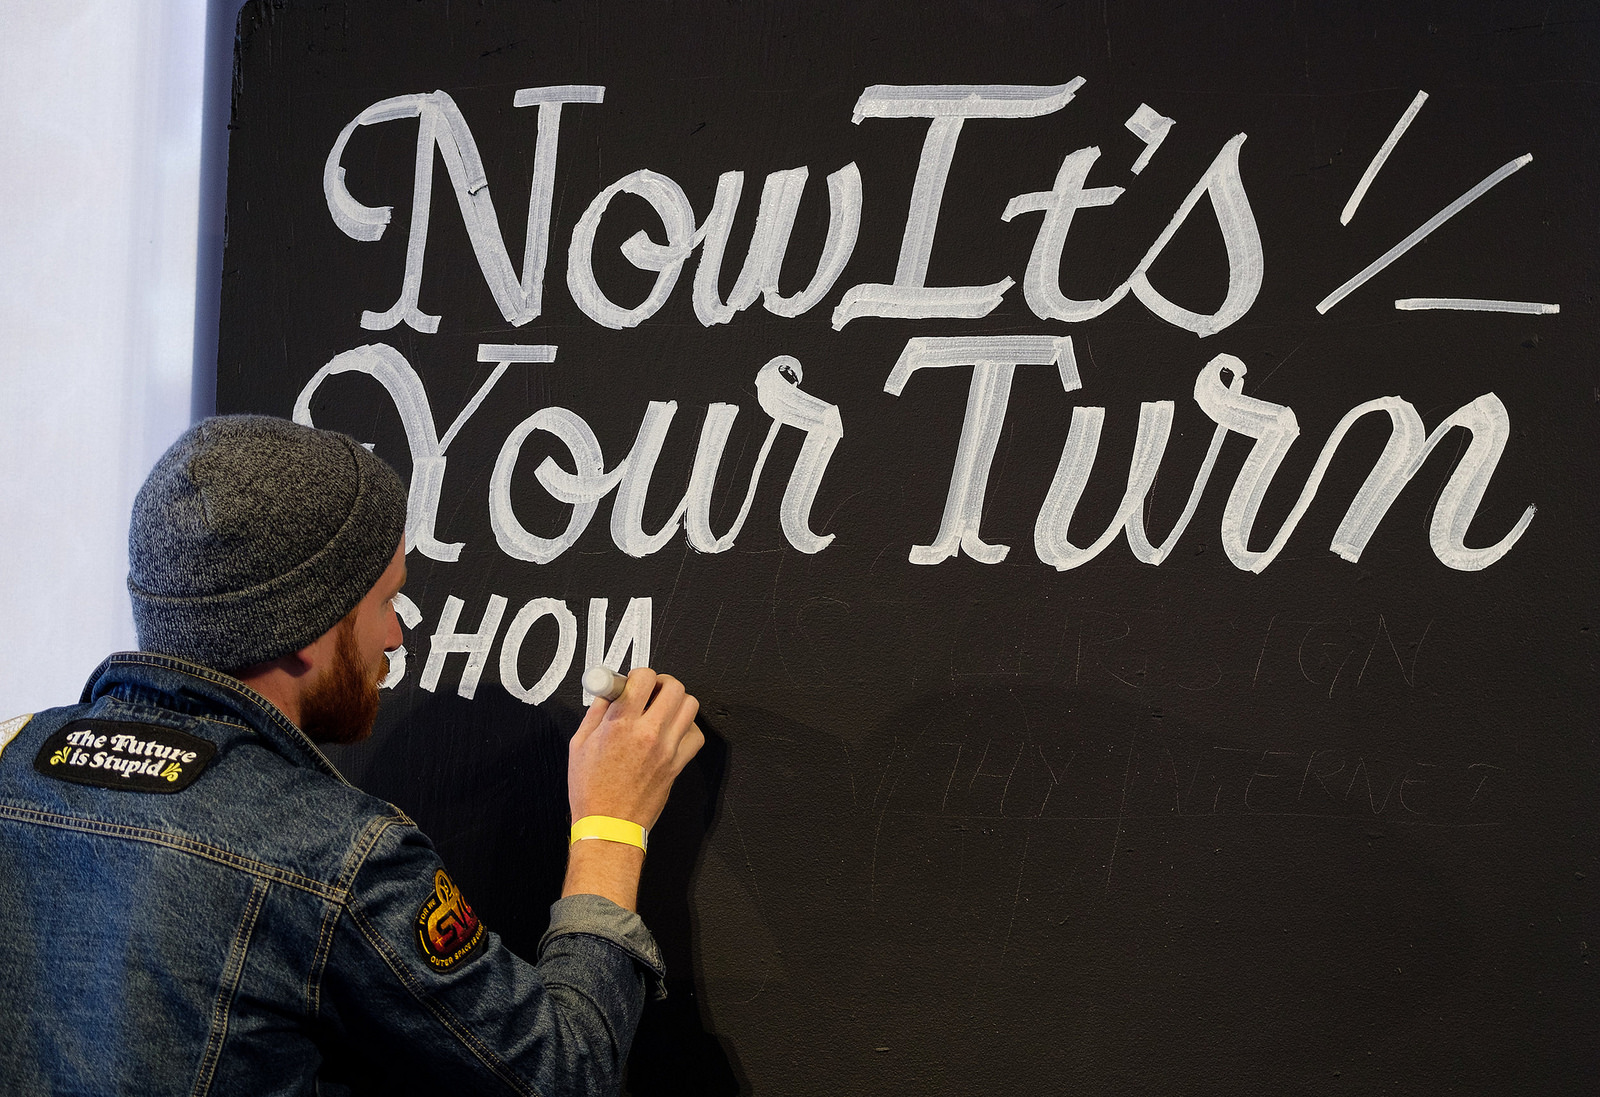 Now It's
Your Turn
SHOW
DESIGN
WHY INTERNET
The Future
is Stupid
OUTER SPACE